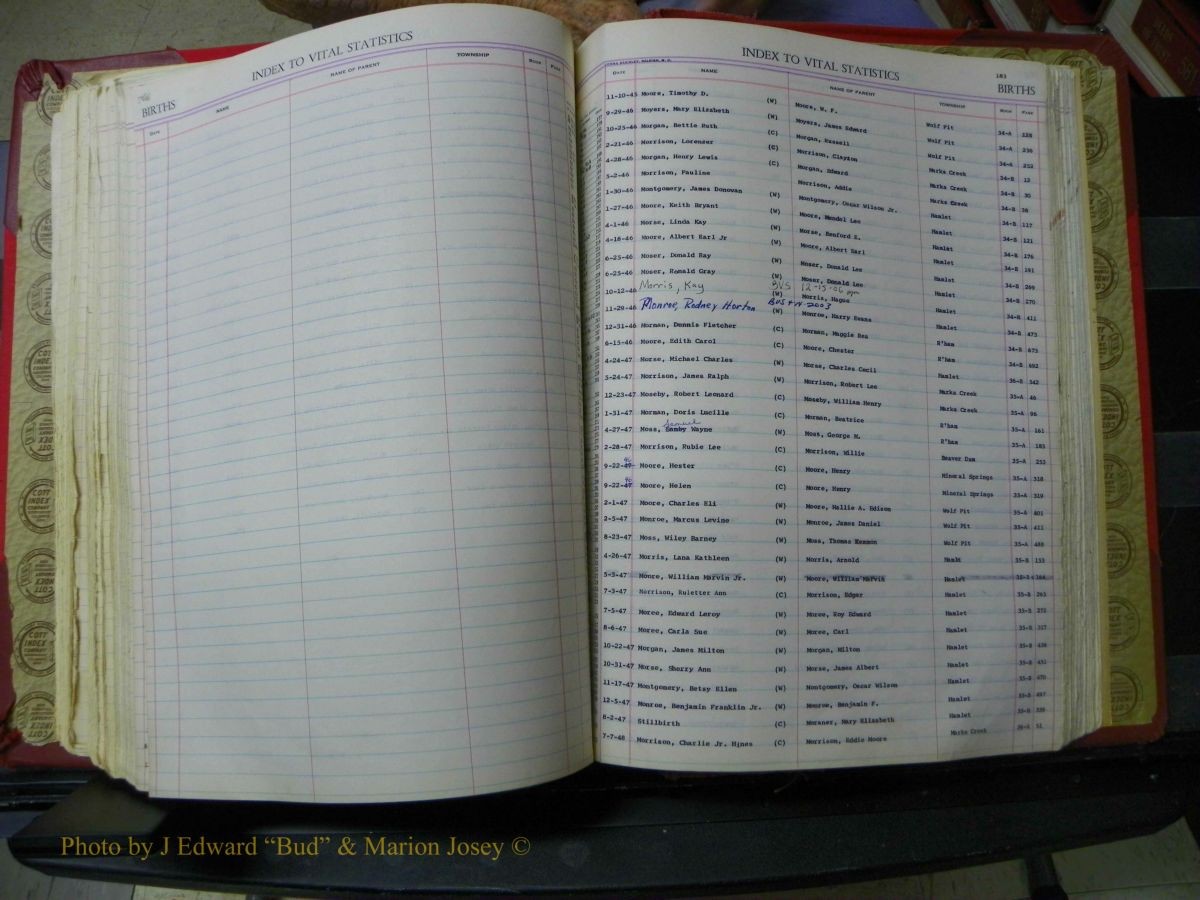 INDEX TO VITAL STATISTICS
BIRTHS
DATE NAME NAME OF PARENT TOWNSHIP BOOK PAGE
INDEX TO VITAL STATISTICS
183
BIRTHS
DATE NAME NAME OF PARENT TOWNSHIP BOOK PAGE
11-10-45 Moore, Timothy D. (W) Moore, W. F. Wolf Pit 34-A 228
9-29-46 Moyers, Mary Elizabeth (W) Moyers, James Edward Wolf Pit 34-A 236
10-25-46 Morgan, Bettie Ruth (C) Morgan, Russell Wolf Pit 34-A 252
2-21-46 Morrison, Lorenzer (C) Morrison, Clayton Marks Creek 34-B 12
4-28-46 Morgan, Henry Lewis (C) Morgan, Edward Marks Creek 34-B 30
5-2-46 Morrison, Pauline Morrison, Addie Marks Creek 34-B
1-30-46 Montgomery, James Donovan (W) Montgomery, Oscar Wilson Jr. Hamlet 34-B 117
1-27-46 Moore, Keith Bryant (W) Moore, Mendel Lee Hamlet 34-B 121
4-1-46 Morse, Linda Kay (W) Morse, Benford E. Hamlet 34-B 176
4-18-46 Moore, Albert Earl Jr (W) Moore, Albert Earl Hamlet 34-B 191
6-25-46 Moser, Donald Ray (W) Moser, Donald Lee Hamlet 34-B 269
6-25-46 Moser, Ronald Gray (W) Moser, Donald Lee Hamlet 34-B 270
10-12-46 Morris, Kay BVS 12-15-06 (W) Morris, Hague Hamlet 34-B 411
11-29-46 Monroe, Rodney Horton BVS 2003 (W) Monroe, Harry Evans Hamlet 34-B 473
12-31-46 Morman, Dennis Fletcher (C) Morman, Maggie Rea R'ham 34-B 673
6-15-46 Moore, Edith Carol (C) Moore, Chester R'ham 34-B 692
4-24-47 Morse, Michael Charles (W) Morse, Charles Cecil Hamlet 36-B 342
5-24-47 Morrison, James Ralph (W) Morrison, Robert Lee Marks Creek 35-A 46
12-23-47 Moseby, Robert Leonard (C) Moseby, William Henry Marks Creek 35-A 96
1-31-47 Morman, Doris Lucille (C) Morman, Beatrice R'ham 35-A 161
Samuel
4-27-47 Moss, Sammy Wayne (W) Moss, George M. R'ham 35-A 183
2-28-47 Morrison, Rubie Lee (C) Morrison, Willie Beaver Dam 35-A 253
46
9-22-47 Moore, Hester (C) Moore, Henry Mineral Springs 35-A 318
46
9-22-47 Moore, Helen (C) Moore, Henry Mineral Springs 35-A 319
2-1-47 Moore, Charles Eli (W) Moore, Hallie A. Edison Wolf Pit 35-A 401
2-5-47 Monroe, Marcus Levine (W) Monroe, James Daniel Wolf Pit 35-A 411
8-23-47 Moss, Wiley Barney (W) Moss, Thomas Kemmon Wolf Pit 35-A 488
4-26-47 Morris, Lana Kathleen (W) Morris, Arnold 35-B 153
5-5-47 Moore, William Marvin Jr. (W) Moore, William Marvin Hamlet 35-B 164
7-3-47 Morrison, Ruletter Ann (C) Morrison, Edgar Hamlet 35-B 263
7-5-47 Moree, Edward Leroy (W) Moree, Roy Edward Hamlet 35-B 272
8-6-47 Moree, Carla Sue (W) Moree, Carl Hamlet 35-B 317
10-22-47 Morgan, James Milton (W) Morgan, Milton Hamlet 35-B 438
10-31-47 Morse, Sherry Ann (W) Morse, James Albert Hamlet 35-B 451
11-17-47 Montgomery, Betsy Ellen (W) Montgomery, Oscar Wilson Hamlet 35-B 470
12-5-47 Monroe, Benjamin Franklin Jr. (W) Monroe, Benjamin F. Hamlet 35-B 497
8-2-47 Stillbirth (C) Moraner, Mary Elizabeth Hamlet 35-B
7-7-48 Morrison, Charlie Jr. Hines (C) Morrison, Eddie Moore Marks Creek 36-A 51
COTT INDEX COMPANY
Photo by J Edward “Bud” & Marion Josey ©